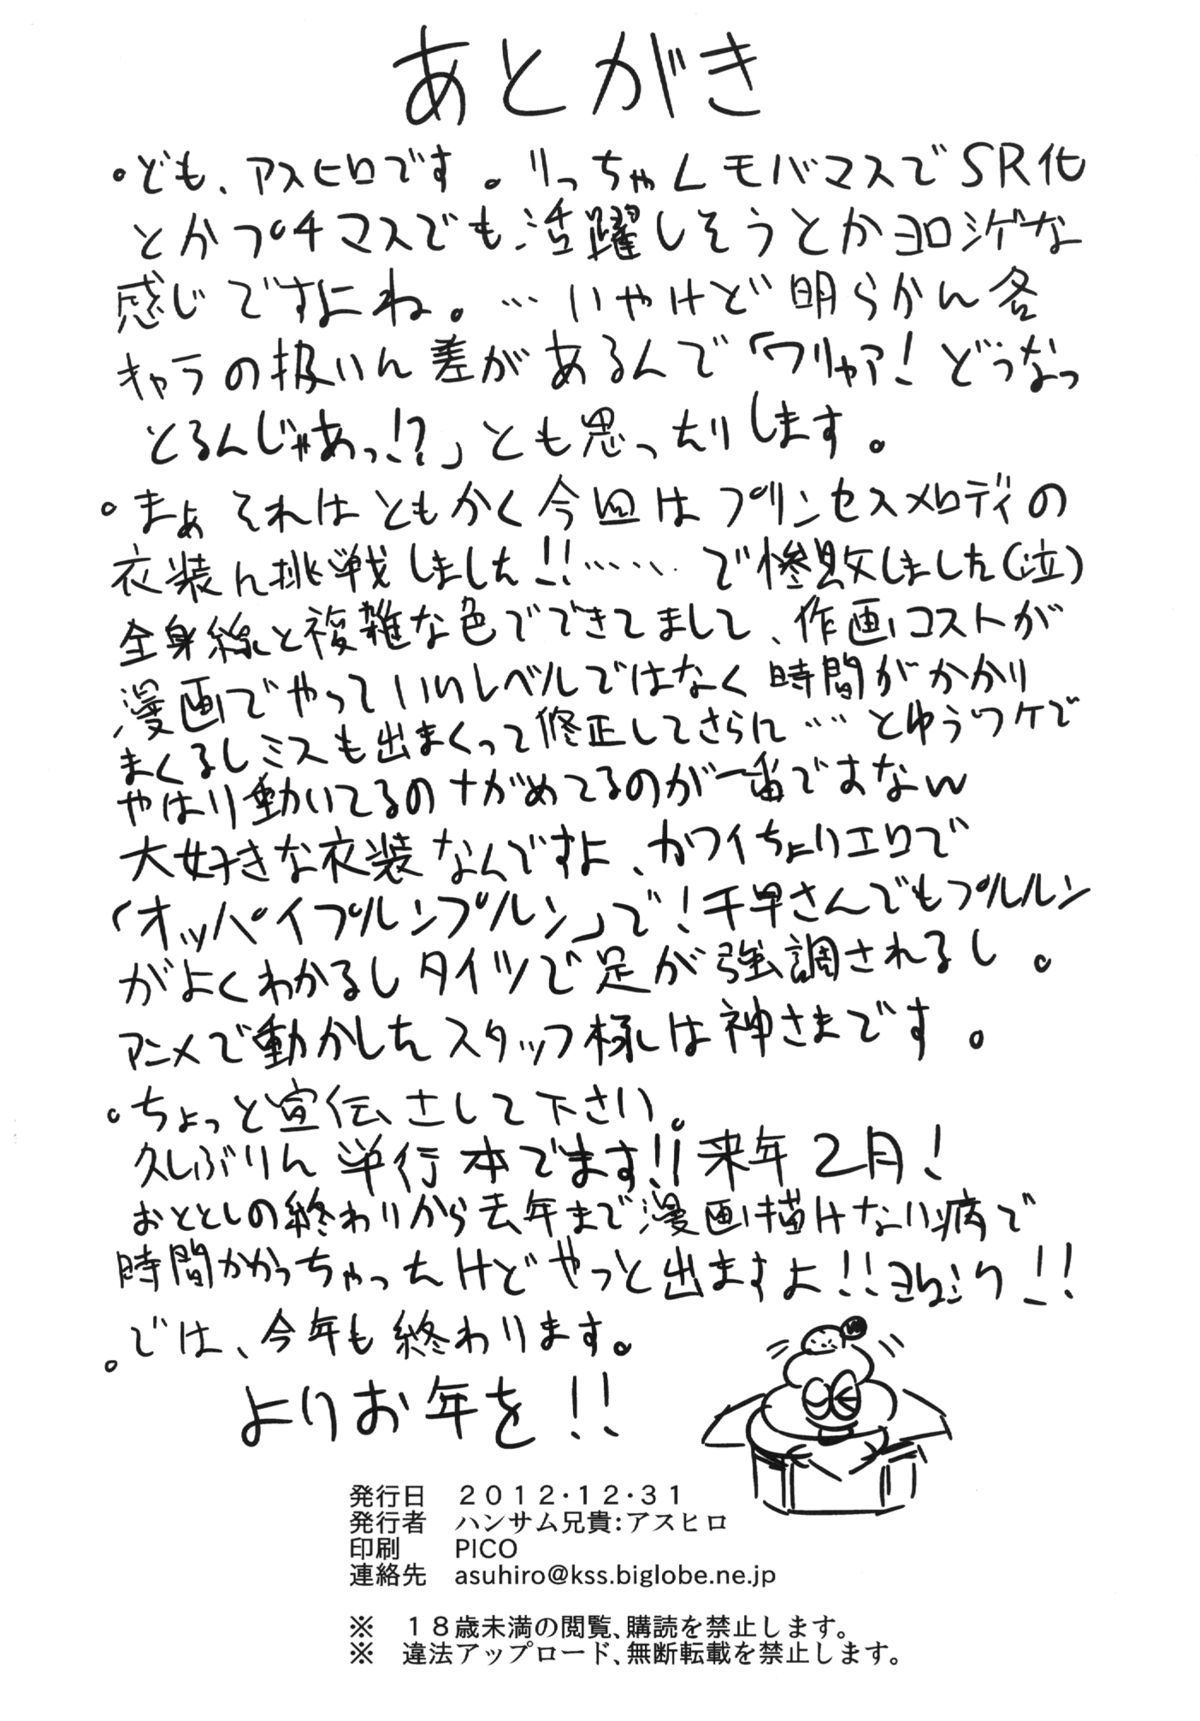 あとがき
・ども、アスヒロです。りっちゃんモバマスでSR化
とかプチマスでも活躍しそうとかヨロシゲな
感じですよね。…いやけど明らかに各
キャラの扱いに差があるんで「ワリャア!どうなっ
とるんじゃあっ!?」とも思ったりします。
・まぁそれはともかく今回はプリンセスメロディの
衣装に挑戦しました!!……で惨敗しました(泣)
全身線と複雑な色でできてまして、作画コストが
漫画でやっていいレベルではなく時間がかかり
まくるしミスも出まくって修正してさらに……とゆうワケで
やはり動いてるのナがめてるのが一番ですなw
大好きな衣装なんですよ、カワイちょりエロで
「オッパイプルンプルン」で!千早さんでもプルルン
がよくわかるしタイツで足が強調されるし。
アニメで動かしたスタッフ様は神さまです。
・ちょっと宣伝さして下さい。
久しぶりに単行本でます!!来年2月!
おととしの終わりから去年まで漫画描けない病で
時間かかっちゃったけどやっと出ますよ!!ヨロシク!!
・では、今年も終わります。
よりお年を!!
発行日 2012・12・31
発行者 ハンサム兄貴:アスヒロ
印刷 PICO
連絡先 asuhiro@kss.biglobe.ne.jp
※ 18歳未満の閲覧、購読を禁止します。
※ 違法アップロード、無断転載を禁止します。